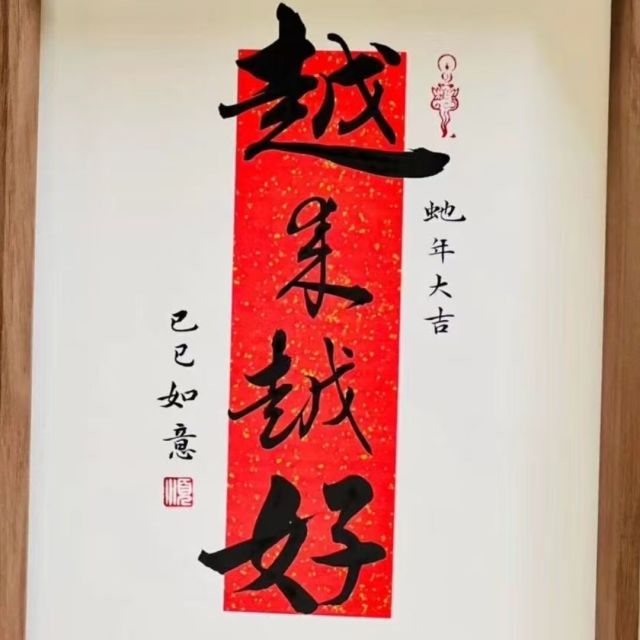 虵年大吉
越来越好
巳巳如意
順